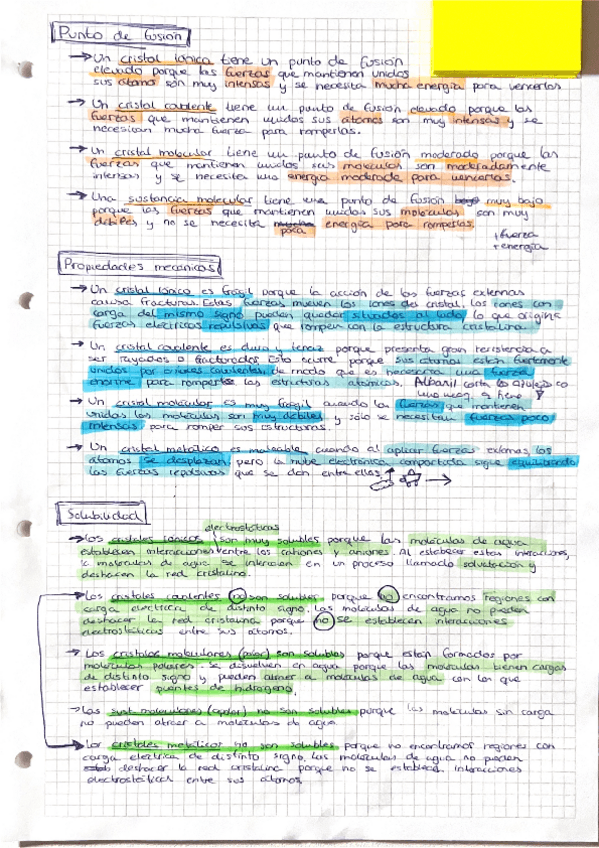 Punto de fusión
→ Un cristal iónico tiene un punto de fusión
elevado porque las fuerzas que mantienen unidos
sus átomo son muy intensas y se necesita mucha energía para vencerlas
→ Un cristal covalente tiene un punto de fusión elevado porque las
fuerzas que mantienen unidos sus átomos son muy intensas y se
necesitan mucha fuerza para romperlas.
→ Un cristal molecular tiene un punto de fusión moderado porque las
fuerzas que mantienen unidos sus moléculas son moderadamente
intensas y se necesita una energía moderada para vencerlas.
→ Una sustancia molecular tiene una punto de fusión muy bajo
porque las fuerzas que mantienen unidos sus moléculas son muy
débiles y no se necesita poca energía para romperlas.
+ fuerza
+ energía
Propiedades mecánicas
→ Un cristal iónico es frágil porque la acción de las fuerzas externas
causa fracturas. Estas fuerzas mueven los iones del cristal, los iones con
carga del mismo signo pueden quedar situados al lado, lo que origina
fuerzas eléctricas repulsivas que rompen con la estructura cristalina
→ Un cristal covalente es dura y tenaz porque presenta gran resistencia a
ser rayados o fracturados. Esto ocurre porque sus átomos están fuertemente
unidos por enlaces covalentes, de modo que es necesaria una fuerza
enorme para romperlos las estructuras atómicas. Albañil corta los azulejos co
→ Un cristal molecular es muy frágil cuando la fuerzas que mantienen
unidas las moléculas son muy débiles y sólo se necesitan fuerzas poco
intensas para romper sus estructuras.
→ Un cristal metálico es maleable cuando al aplicar fuerzas externas, los
átomos se desplazan pero la nube electrónica compartida sigue equilibrando
las fuerzas repulsivas que se dan entre ellos
Solubilidad
electrostáticas
→ Los cristales iónicos son muy solubles porque las moléculas de agua
establecen interacciones entre los cationes y aniones. Al establecer estas interacciones,
la moléculas de agua se en un proceso llamado solvatación y
deshacen la red cristalina.
→ Los cristales covalentes no son solubles porque no encontramos regiones con
carga eléctrica de distinto signo. Las moléculas de agua no pueden
deshacer la red cristalina porque no se establecen interacciones
electrostáticas entre sus átomos.
→ Los cristales moleculares (polar) son solubles porque están formados por
moléculas polares. Se disuelven en agua porque las moléculas tienen cargas
de distinto signo y pueden atraer a moléculas de agua con las que
establecer puentes de hidrógeno.
→ Las sust. moleculares (apolar) no son solubles porque las moléculas sin carga
no pueden atraer a moléculas de agua
→ Los cristales metálicos no son solubles porque no encontramos regiones con
carga eléctrica de distinto signo. Las moléculas de agua no pueden
deshacer la red cristalina porque no se establecen interacciones
electrostáticas entre sus átomos.